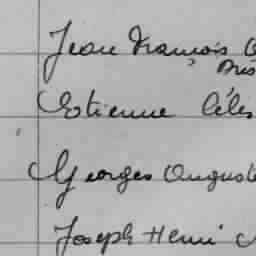 Jean François
Etienne Céles
Georges Auguste
Joseph Henri